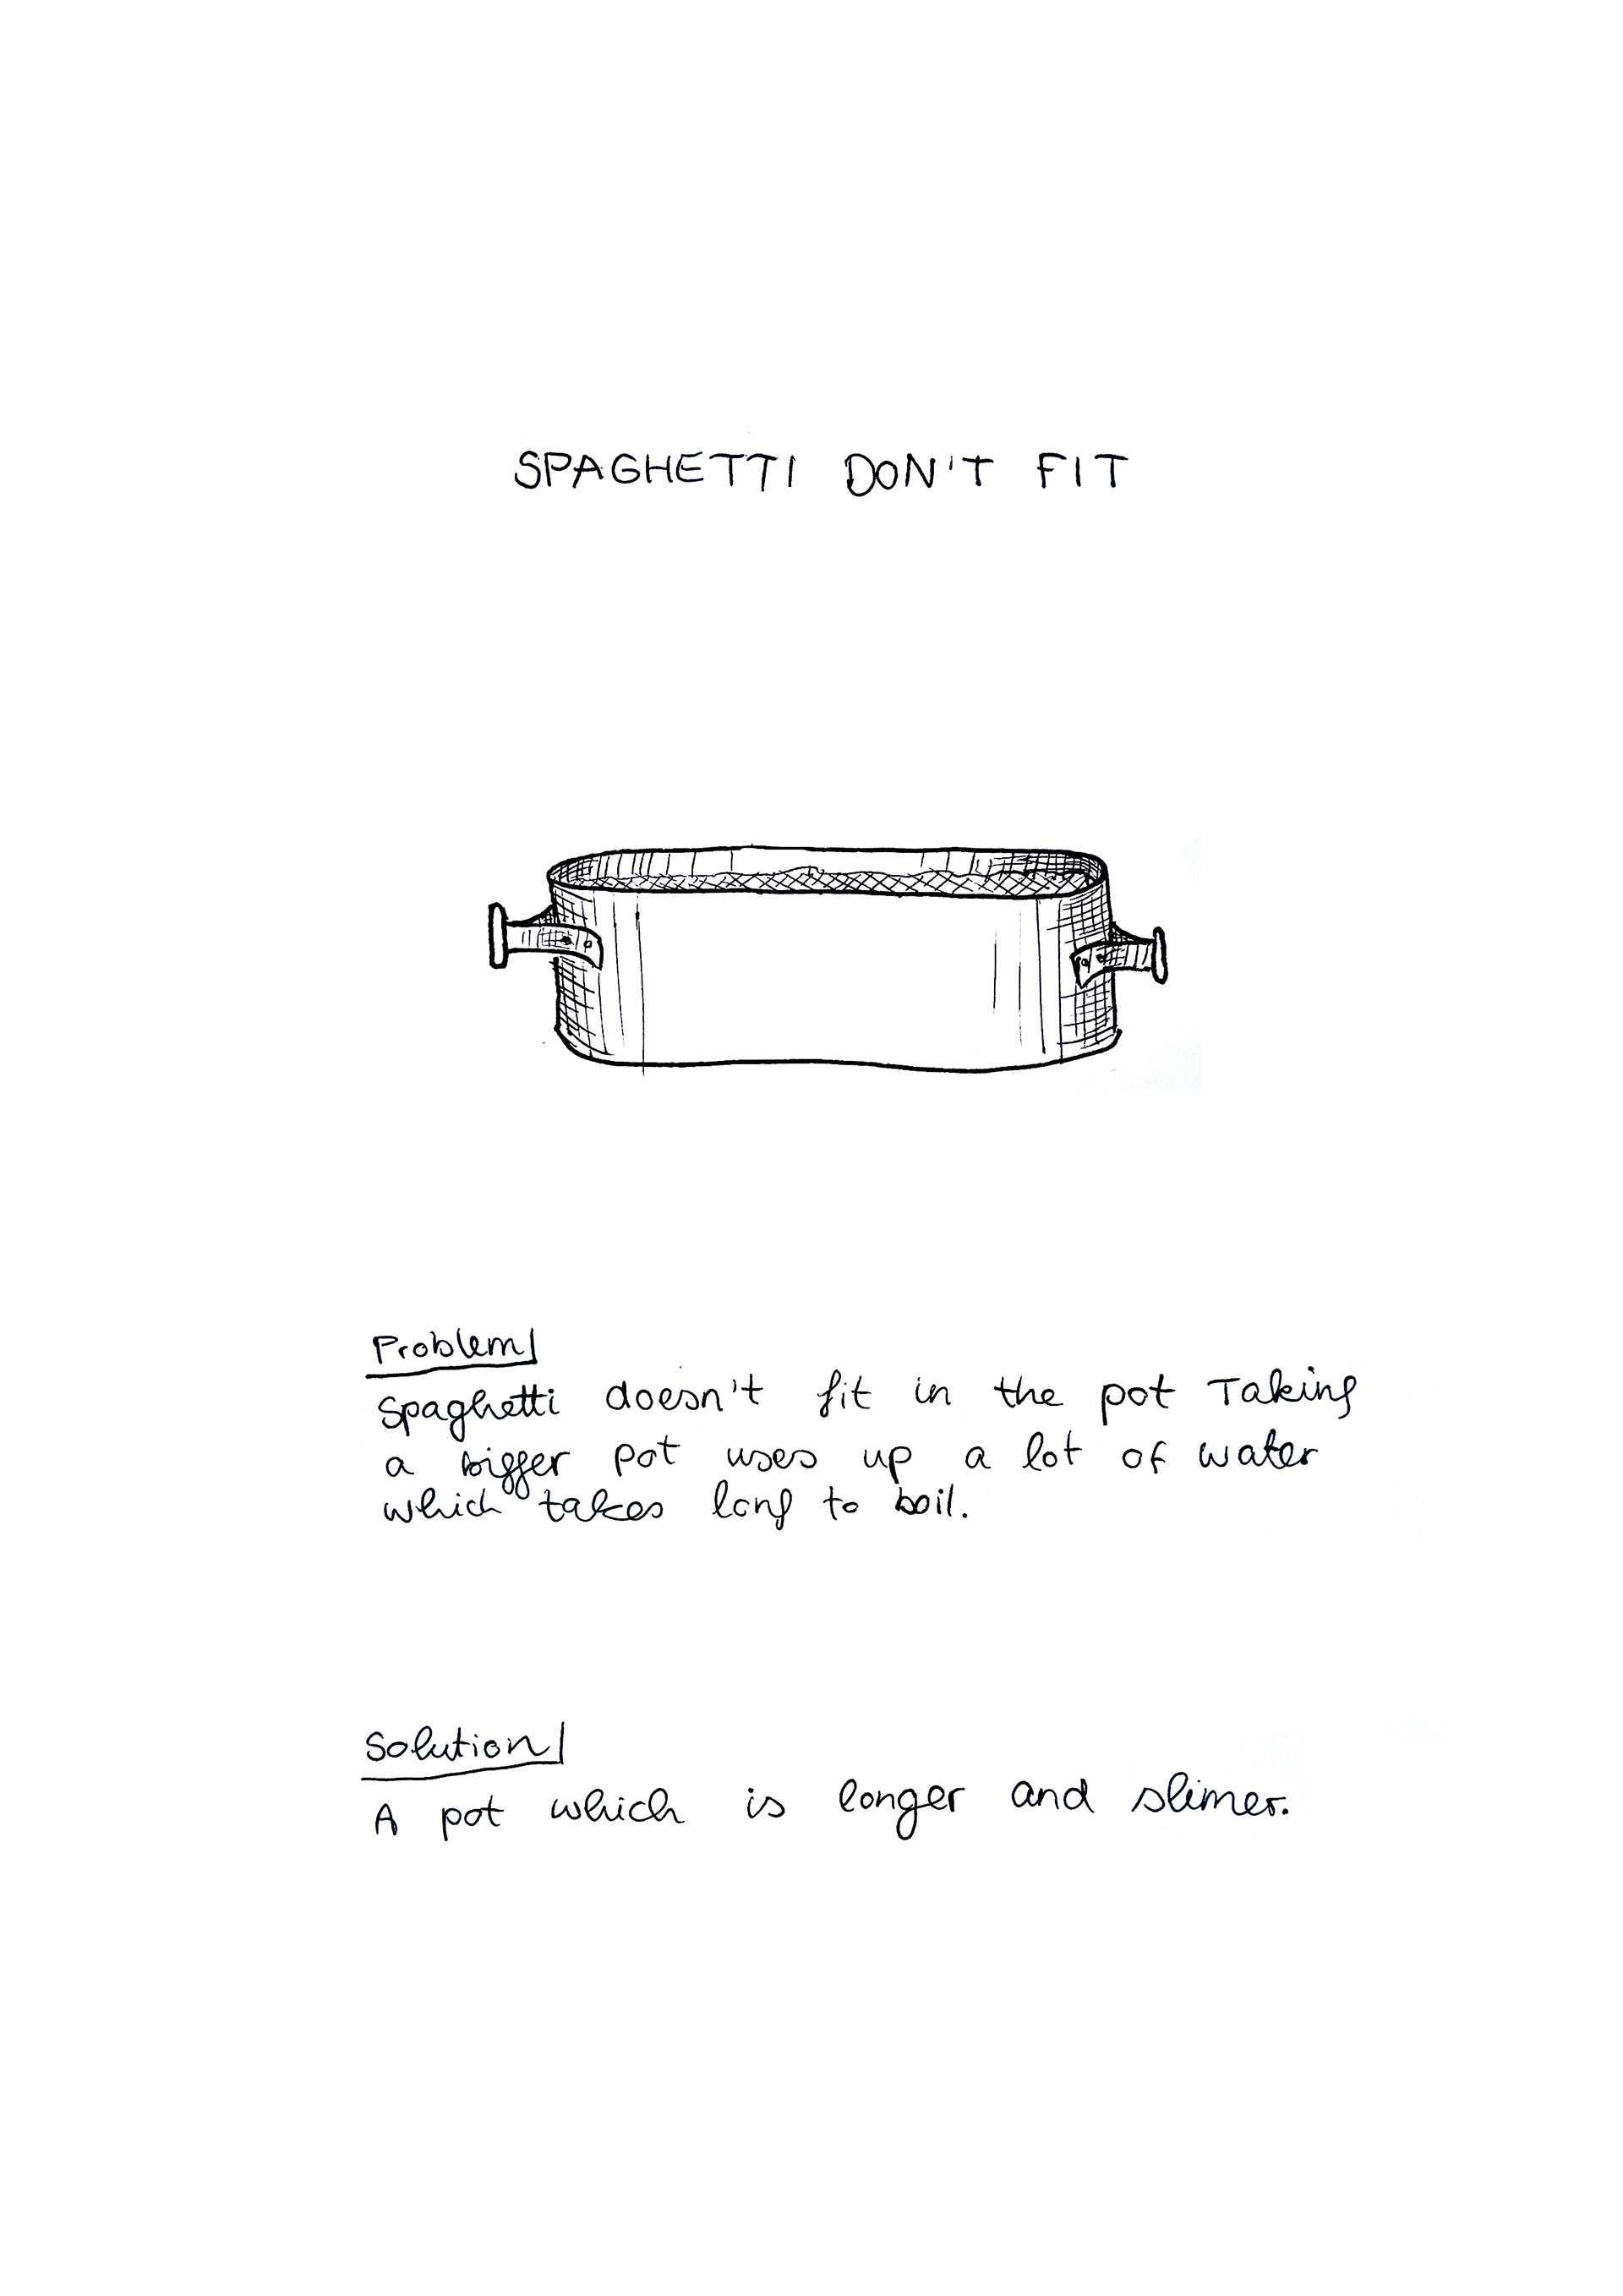 SPAGHETTI DON'T FIT
Problem
Spaghetti doesn't fit in the pot Taking
a bigger pot uses up a lot of water
which takes long to boil.
Solution
A pot which is longer and slimer.